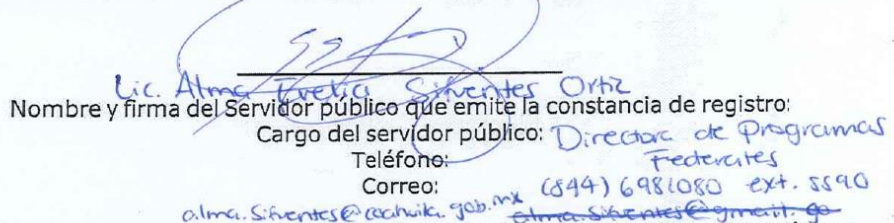 Lic. Alma Evelia Sifuentes Ortiz
Nombre y firma del Servidor público que emite la constancia de registro:
Cargo del servidor público: Directora de Programas
Teléfono: Federales
Correo: (844) 6981080 ext. 5590
alma.sifuentes@coahuila.gob.mx alma.sifuentes@gmail.go